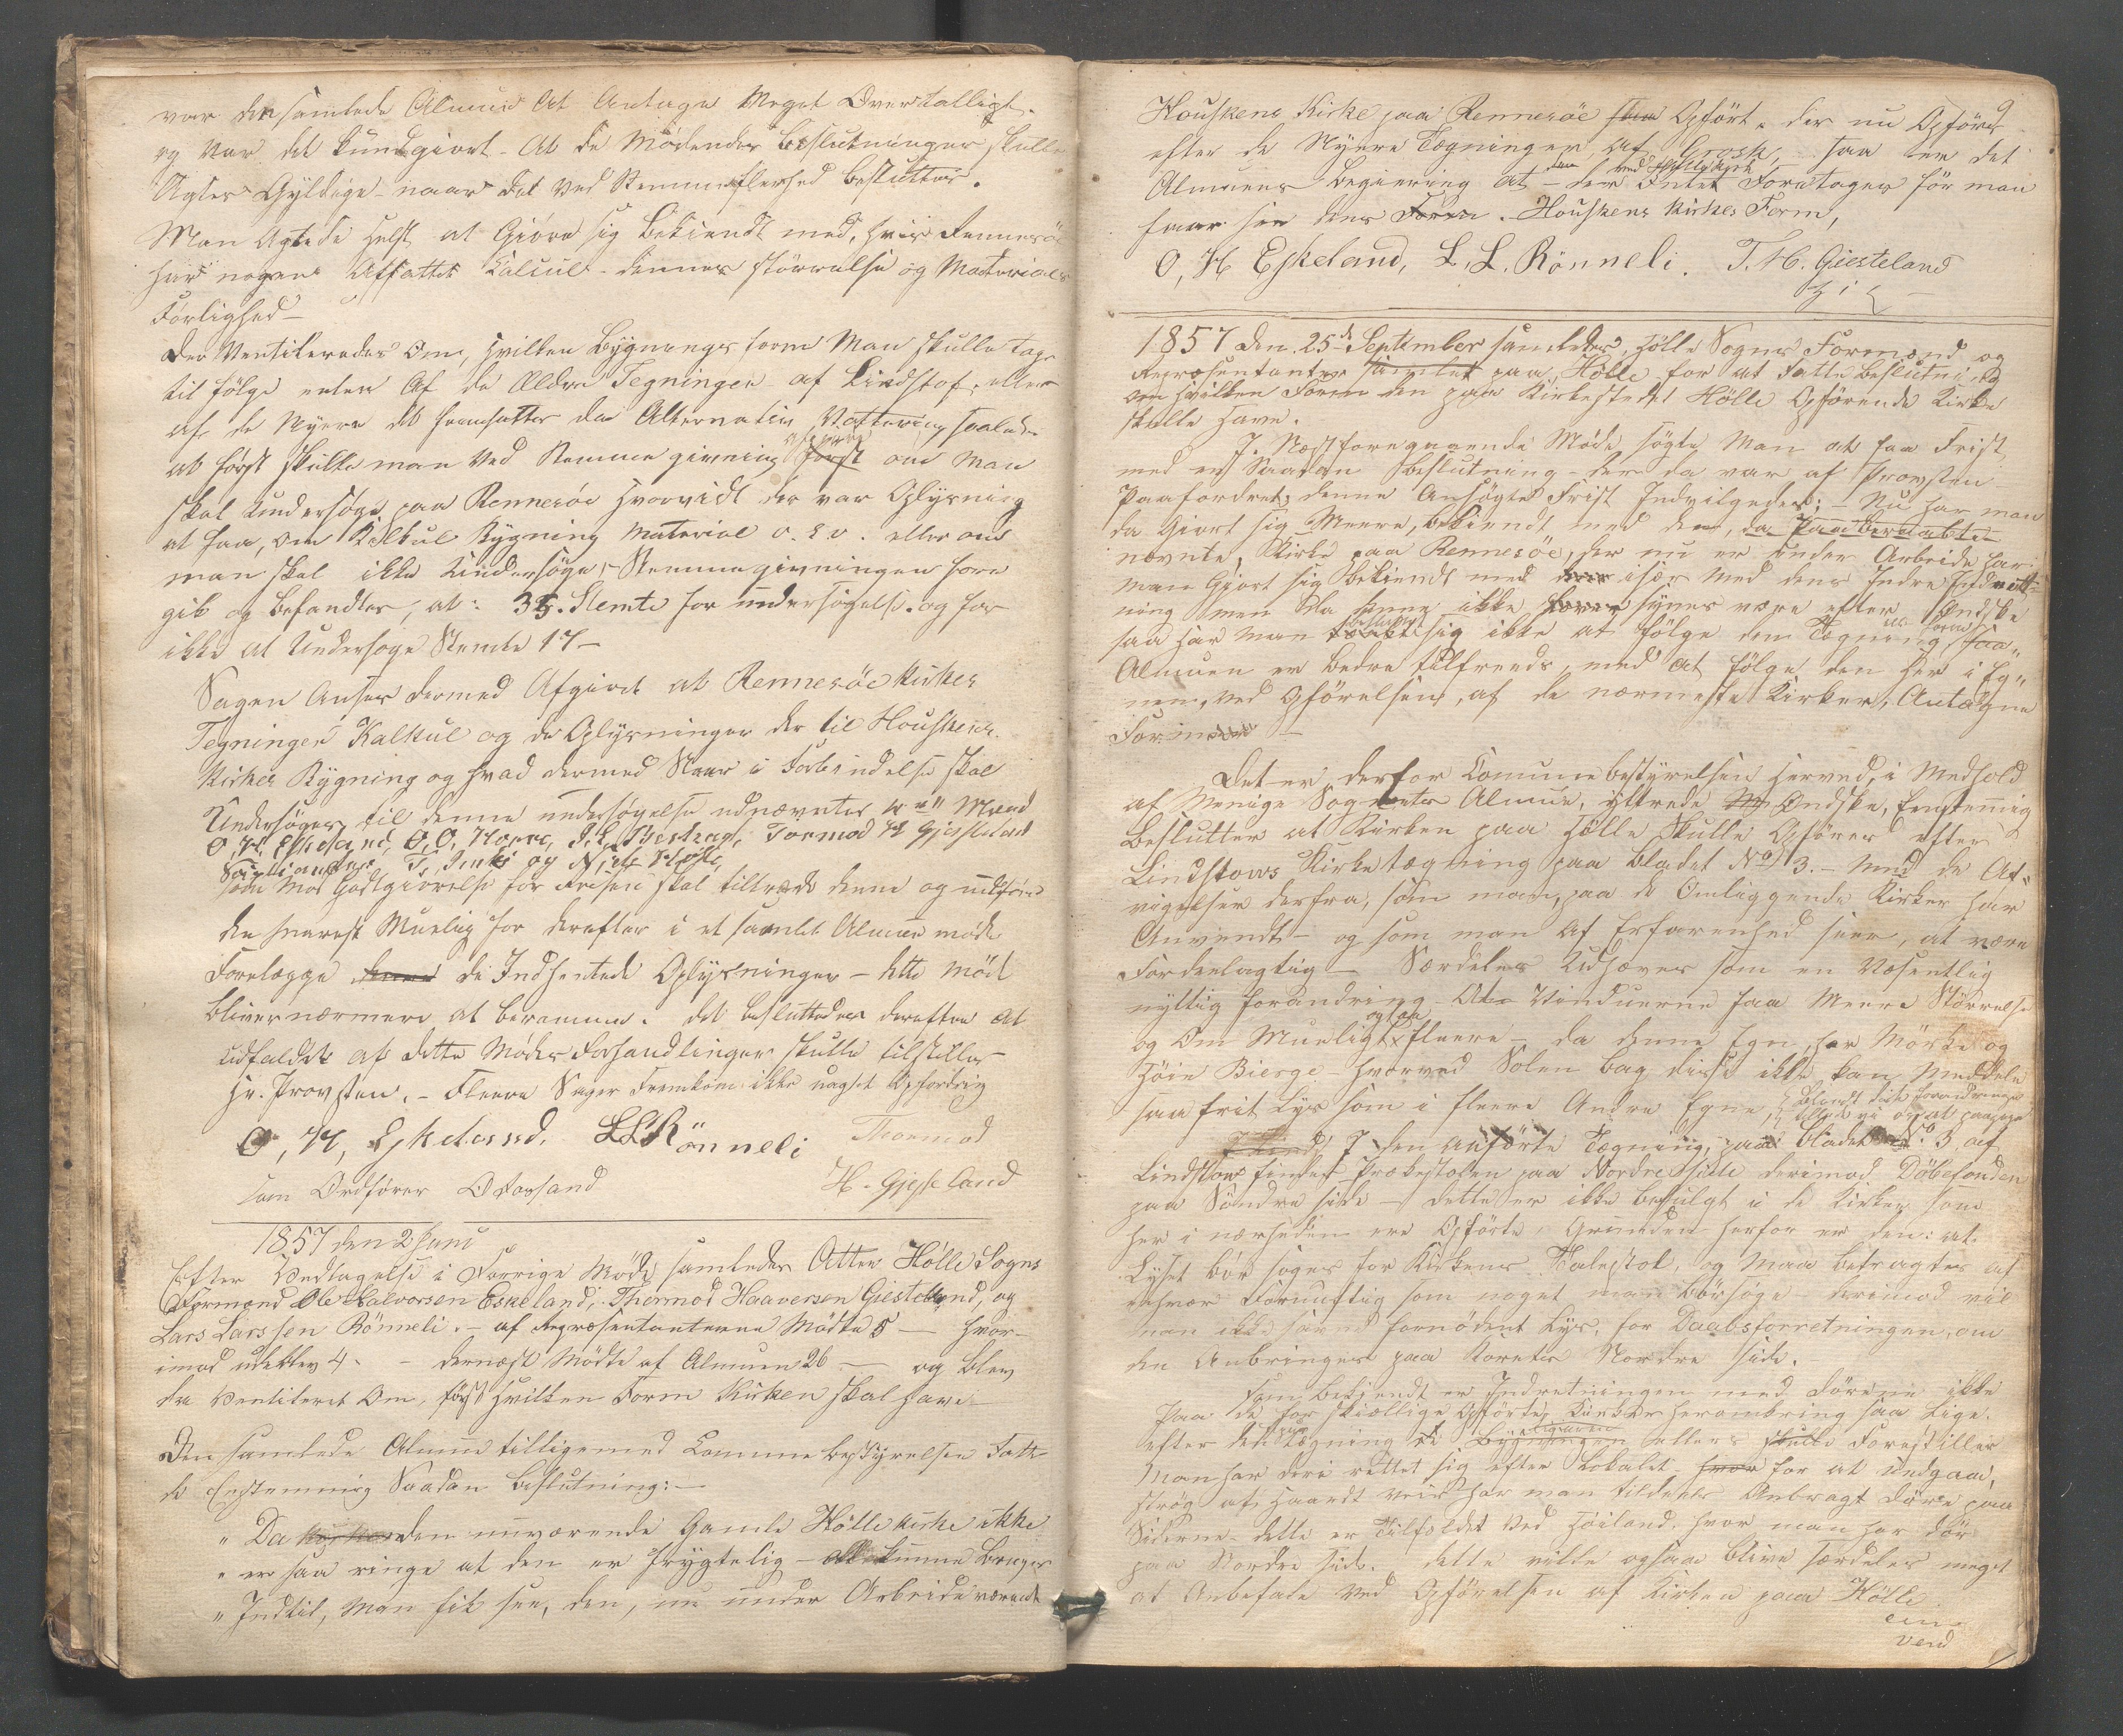 var den samlede Almue At Antage Meget Overtalligt.
og Var det kundgiort - At de Mödendes Beslutninger skulle
Agtes Gyldige - naar det ved Stemmeflerhed besluttes.
Man Agtede helst at Giöre sig Bekiendt med, hvis Rennesöe
har nogen Affattet Calcul - dennes störrelse og Materials
Förlighed -
Der Ventileredes Om, hvilken Bygnings form Man skulle tage
til fölge enten Af de Ældre Tegninger af Lindstof, eller
af de Nyere det fremsattes da Alternativ Vottering saalede
at först skulle man Ved Stemmegivning först om Man
skal Undersöge paa Rennesöe hvorvidt der var Oplysning
at faa, om Kalkul Bygning Material o.s.v. eller om
man skal ikke Undersöge, - Stemmegivningen fore
gik og befandtes, at: 35. Stemte for undersögelse. og for
ikke at Undersöge Stemte 17 -
Sagen Anses dermed Afgiort at Rennesöe Kirkes
Tegninger Kalkul og de Oplysninger der til Houskens
Kirkes Bygning og hvad dermed Staar i Forbindelse skal
Undersöges, til denne undersögelse udnævntes Mænd
O. H. Eskeland, O, O, Tormod H Gjesteland
T. og Niels
som Mod Godtgiörelse for Reisen skal tilltræde denne og udföres
den snarest Muelig for derefter i et samlet Almue möde
Forelægge de Indhentede Oplysninger - dette Möde
bliver nærmere at beramme. det besluttedes derefter at
Udfaldet af dette Mödes Forhandlinger skulle tilstilles
Hr. Provsten. - Fleere Sager Fremkom ikke uagtet Opfordring
O, H, Eskeland. LLRönneli Thormod
som Ordförer O Fossand H. Gjesteland
1857 den 2 Juni
Efter Vedtagelse i Forrige Möde samledes Atter Hölle Sogns
Formænd Ole Halvorsen Eskeland, Thormod Haaversen Giesteland, og
Lars Larssen Rönneli. - af Repræsentanterne Mödte 5 - hvor-
imod udeblev 4. - dernæst Mödte af Almuen 26 - og blev
da Ventileret Om, först hvilken Form Kirken skal have
Den samlede Almue tilligemed Commune bestyrelsen Fatte
de Enstemmig Saadan Beslutning: -
" Da den nuværende Gamle Hölle Kirke ikke
" er saa ringe at den er frygtelig - kunne Bruges
" Indtil, Man fik see, den, nu under Arbeide værende
9
Houskens Kirke paa Rennesöe Opfört. der nu Opföres
efter de Nyere Tegninger af Grosh, saa er det
Almuens Begiering at - der Intet Foretages för man
faar see dens Form. - Houskens Kirkes Form,
O, H Eskeland, L. L. Rönneli. T. H. Giesteland
1857 den 25de September samledes, Hölle Sogns Formænd og
Repræsentanter samlet paa Hölle for at Fatte Beslutning
om hvilken Form den paa Kirkestedet Hölle Opförende Kirke
skulle have.
I Næstforegaaende Möde, sögte Man at faa Frist
med en Saadan Beslutning - der da var af Provsten
Paafordret; denne Ansögte Frist Indvilgedes; - Nu har man
da Giort sig Meere, bekiendt med den, da Paaberaabte
nævnte, Kirke paa Rennesöe, der nu er under Arbeide har
man Giort sig Bekiendt med især med dens Indre Indrett-
ning men da denne ikke synes være efter Öndske
saa har man besluttet sig ikke at fölge den Tegning, saa"
Almuen er bedre tilfreds, med at fölge den her i Eg"
nen, ved Opförelsen, af de nærmeste Kirker, Antagne
Former -
Det er derfor Communebestyrelsen herved, i Medhold
af Menige Sognets Almue, yttrede Öndske, Enstemmig
Beslutter at Kirken paa Hölle skulle Opföres efter
Lindstows Kirketægning paa bladet No 3. - med de Af-
vigelser derfra, som man, paa de Omliggende Kirker har
Anvendt - og som man Af Erfarenhed seer, at være
Fordeelagtig - Særdeles Udhæves som en Væsentlig
nyttig forandring - At Vinduerne faa Meere Störrelse
og Om Mueligt fleere - da denne Egn, har Mörke og
Höie Bierge - hvorved Solen bag disse ikke kan Meddele
saa frit Lys som i fleere Andre Egne,
I den anförte Tægning, paa bladet No. 3 af
Lindstow findes Prækestolen paa Nordre side derimod Döbefonden
paa Söndre side - dette er ikke befulgt i de Kirker som
her i nærheden ere Opförte, Grunden herfor er den: at
Lyset bör söges for Kirkens Talestol, og maa betragtes af
enhver Fornuftig som noget man bör söge - derimod vil
man ikke savne fornödent Lys, for Daabsforretningen, om
den Anbringes paa Korets Nordre side. -
Som bekjendt er Indretningen med Dörene ikke
Paa de forskiellige opförte, Kirker heromkring saa Lige.
efter den Tægning Bygningen ellers skulle Forestiller
Man har deri rettet sig efter Lokalet for at undgaae,
strög af haardt Veir har man tildeels Anbragt döre paa
Siderne - dette er Tilfeldet ved Höiland. hvor man har dör
paa Nordre side. dette ville ogsaa blive særdeles meget
at Anbefale ved Opförelsen af Kirken paa Hölle
vend